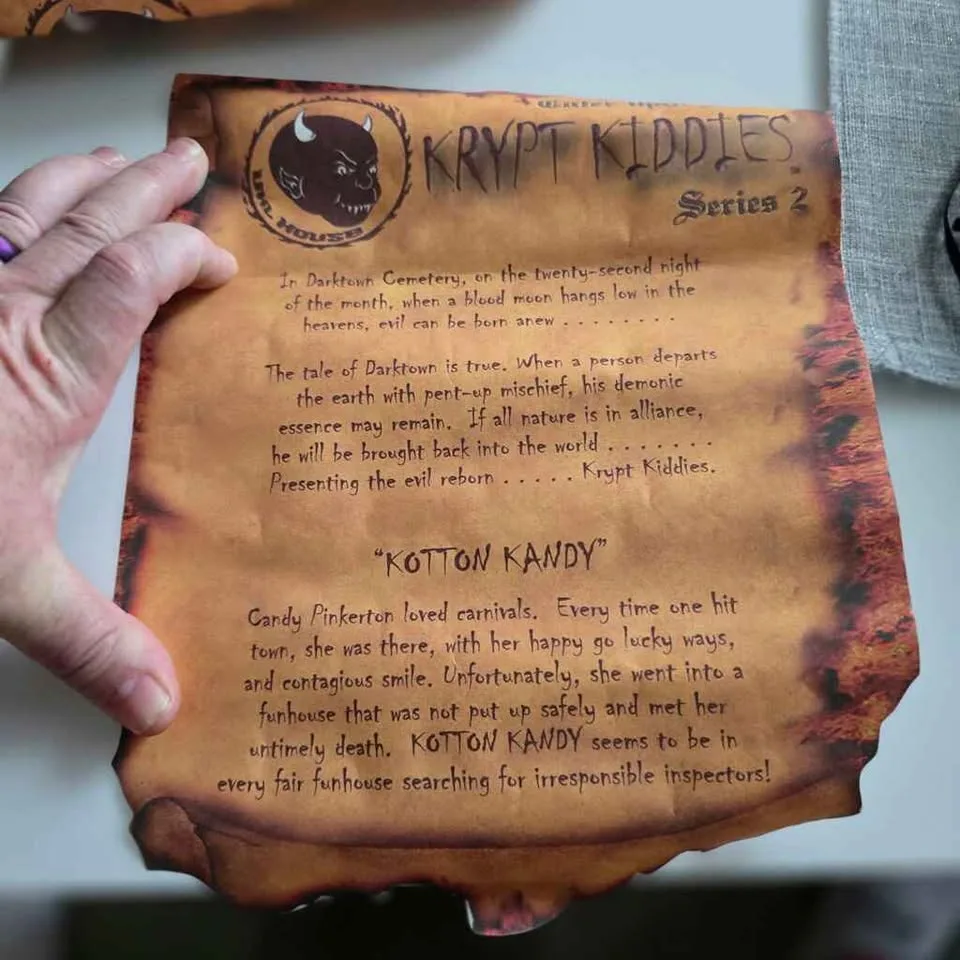 KRYPT KIDDIES
Series 2
HOUSE
In Darktown Cemetery, on the twenty-second night
of the month, when a blood moon hangs low in the
heavens, evil can be born anew . . . . . . . .
The tale of Darktown is true. When a person departs
the earth with pent-up mischief, his demonic
essence may remain. If all nature is in alliance,
he will be brought back into the world . . . . . . .
Presenting the evil reborn . . . . . Krypt Kiddies.
“KOTTON KANDY”
Candy Pinkerton loved carnivals. Every time one hit
town, she was there, with her happy go lucky ways,
and contagious smile. Unfortunately, she went into a
funhouse that was not put up safely and met her
untimely death. KOTTON KANDY seems to be in
every fair funhouse searching for irresponsible inspectors!